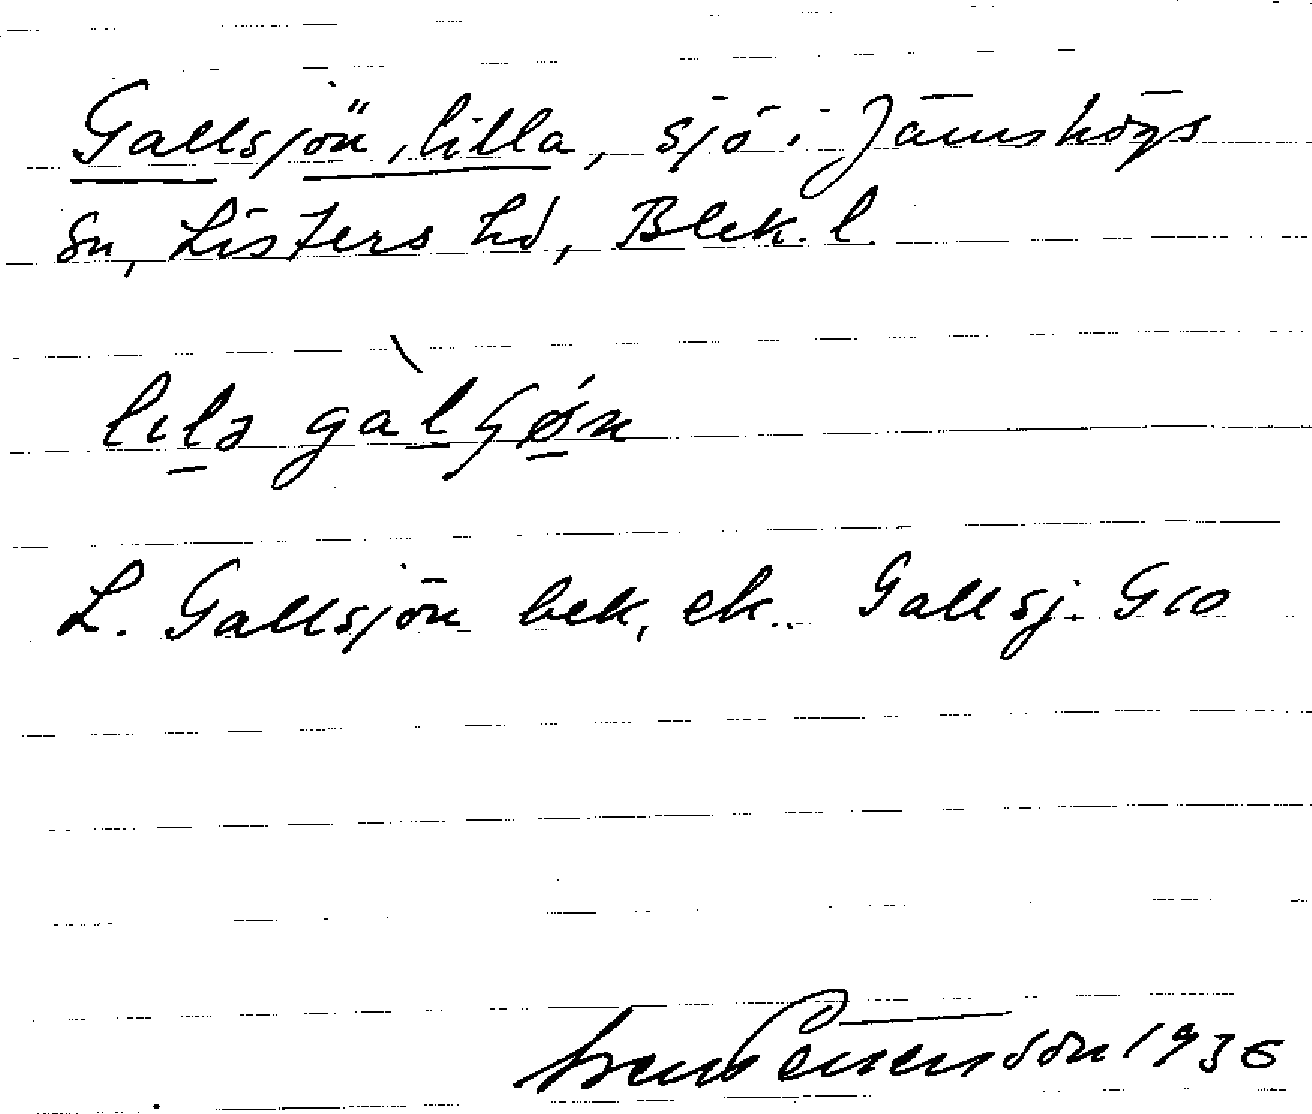 Gallsjön, lilla, sjö i Jämshögs
Sn, Listers hd, Blek. l.
lɩlə gàlʃøn
L. Gallsjön bek, ek. Gallsj. G10
Sven Benson 1936